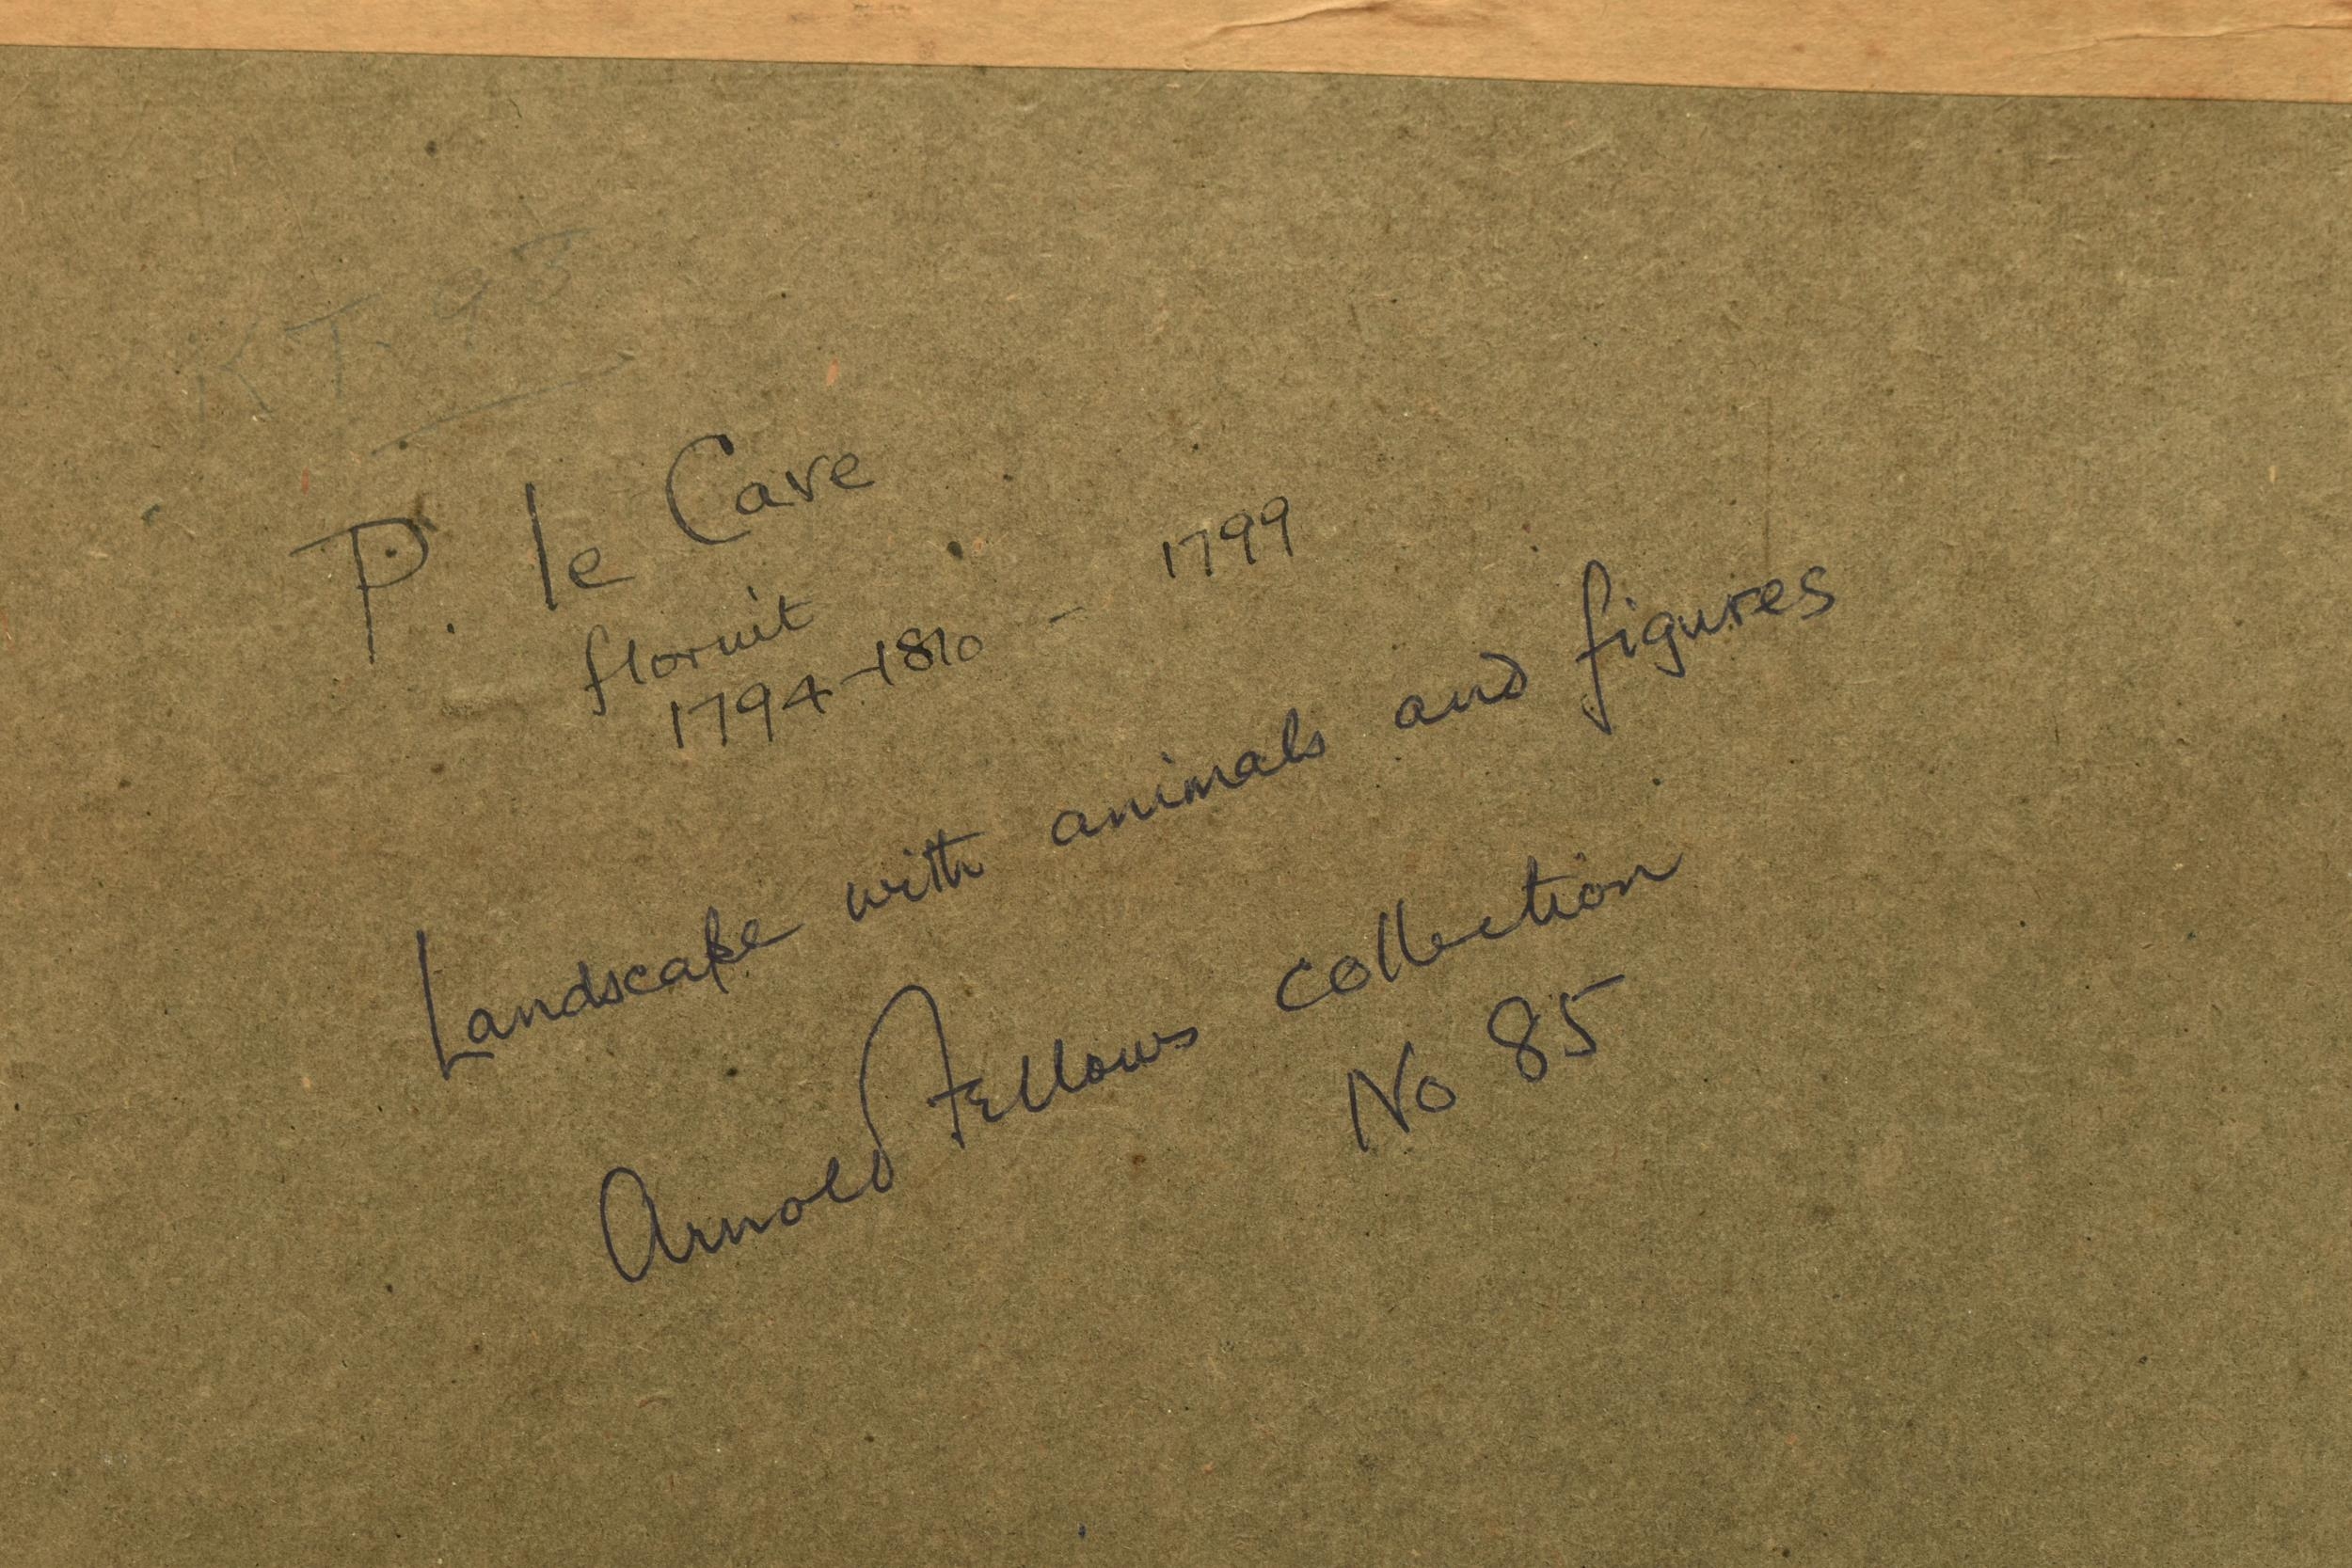 P. le Cave
floruit
1794-1810 - 1799
Landscape with animals and figures
Arnold Fellows collection
No 85